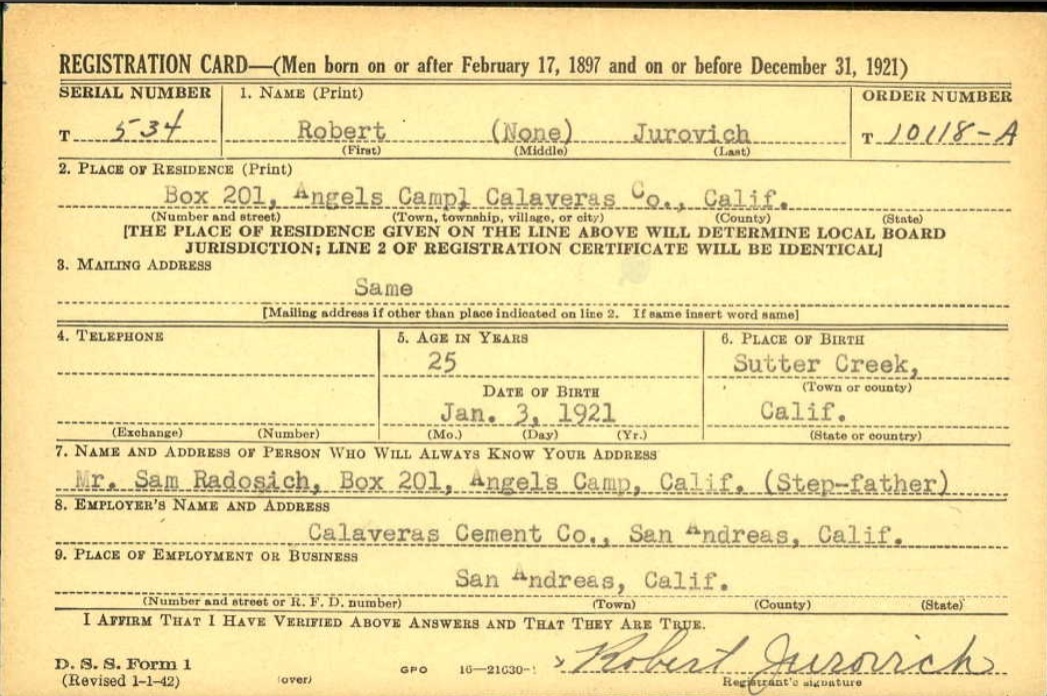 REGISTRATION CARD—(Men born on or after February 17, 1897 and on or before December 31, 1921)
SERIAL NUMBER 1. NAME (Print) ORDER NUMBER
T 534 Robert (None) Jurovich T 10118-A
(First) (Middle) (Last)
2. PLACE OF RESIDENCE (Print)
Box 201, Angels Camp, Calaveras Co., Calif.
(Number and street) (Town, township, village, or city) (County) (State)
[THE PLACE OF RESIDENCE GIVEN ON THE LINE ABOVE WILL DETERMINE LOCAL BOARD
JURISDICTION; LINE 2 OF REGISTRATION CERTIFICATE WILL BE IDENTICAL]
3. MAILING ADDRESS
Same
[Mailing address if other than place indicated on line 2. If same insert word same]
4. TELEPHONE 5. AGE IN YEARS 6. PLACE OF BIRTH
25 Sutter Creek,
DATE OF BIRTH (Town or county)
Jan. 3, 1921 Calif.
(Exchange) (Number) (Mo.) (Day) (Yr.) (State or country)
7. NAME AND ADDRESS OF PERSON WHO WILL ALWAYS KNOW YOUR ADDRESS
Mr. Sam Radosich, Box 201, Angels Camp, Calif. (Step-father)
8. EMPLOYER'S NAME AND ADDRESS
Calaveras Cement Co., San Andreas, Calif.
9. PLACE OF EMPLOYMENT OR BUSINESS
San Andreas, Calif.
(Number and street or R. F. D. number) (Town) (County) (State)
I AFFIRM THAT I HAVE VERIFIED ABOVE ANSWERS AND THAT THEY ARE TRUE.
D. S. S. Form 1 GPO 16—21630- Robert Jurovich
(Revised 1-1-42) (over) Registrant's signature